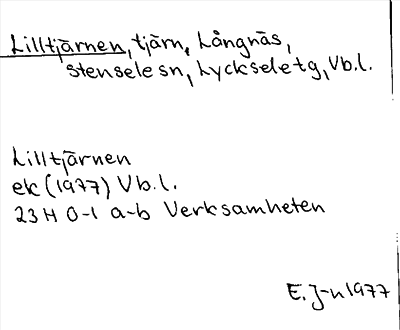 Lilltjärnen, tjärn, Långnäs,
Stensele sn, Lycksele tg, Vb.l.
Lilltjärnen
ek (1977) Vb.l.
23 H 0-1 a-b Verksamheten
E. J-n 1977